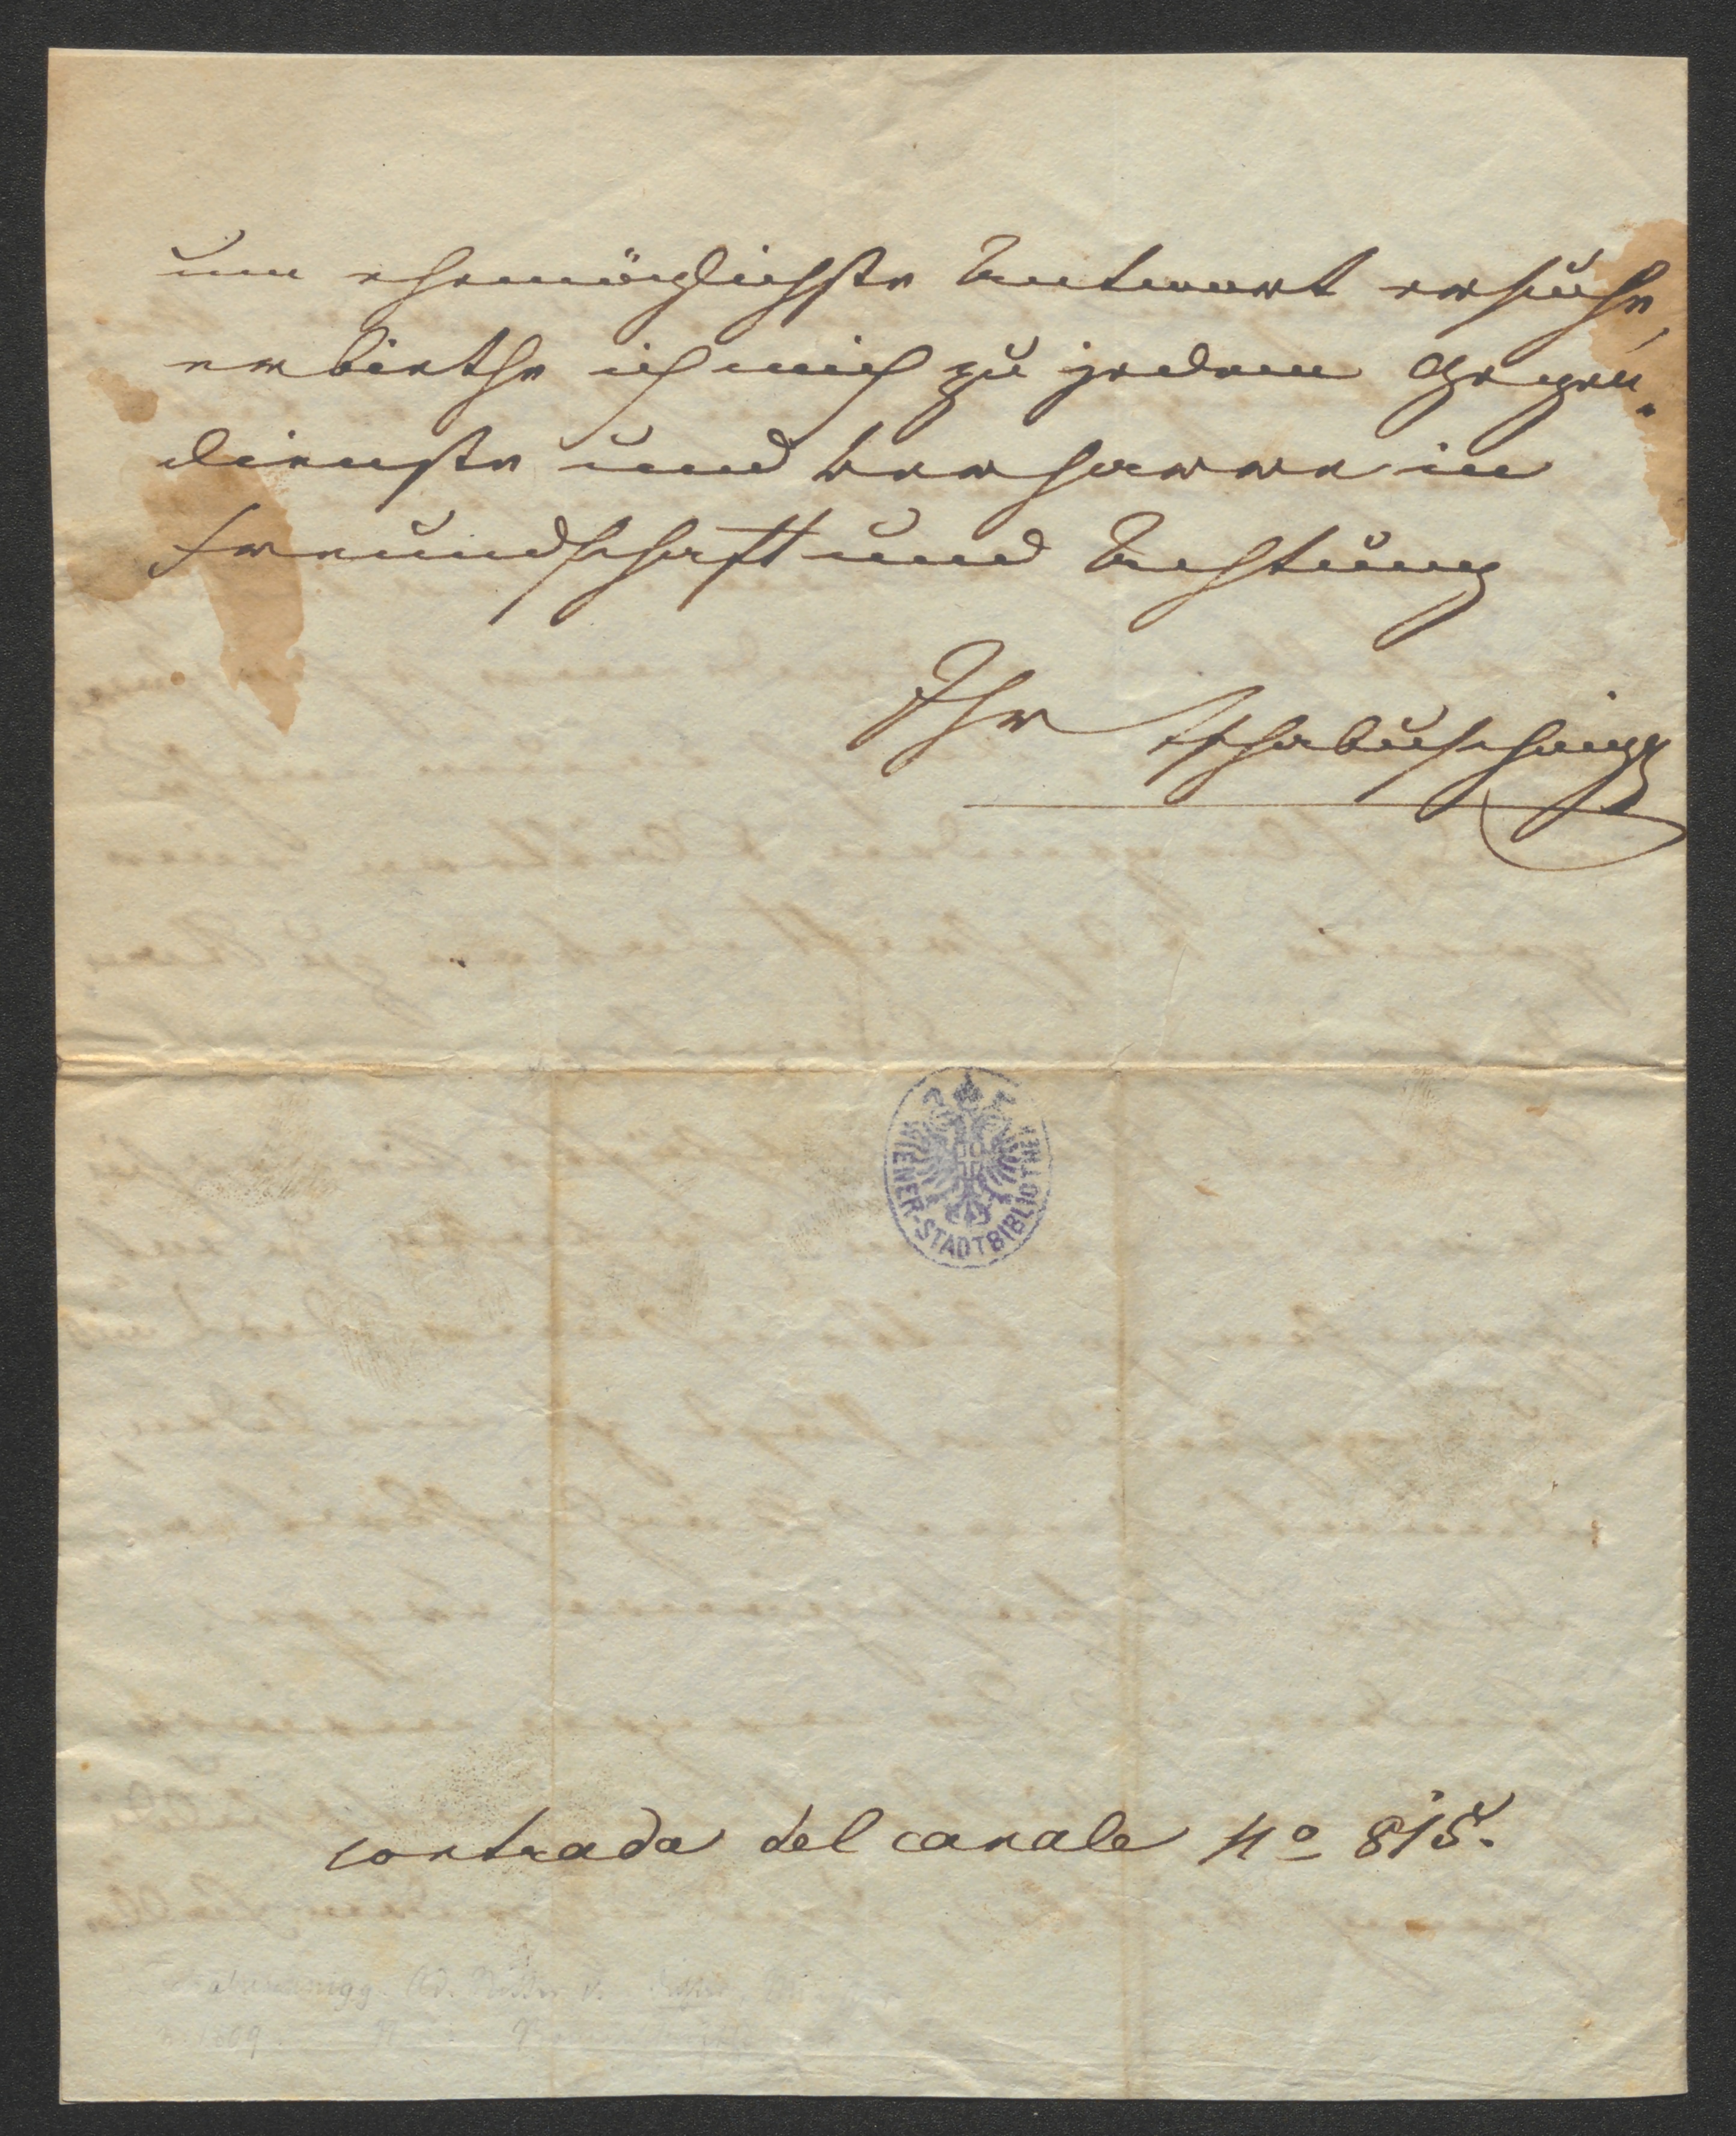 um ehemöglichste Antwort ersuche,
erbiethe ich mich zu jedem Gegen-
dienste und verharre in
Freundschaft und Achtung
Ihr Tschabuschnigg
WIENER-STADTBIBLIOTHEK
contrada del canale No 815.
Tschabuschnigg Ad. Ritter v.
1809